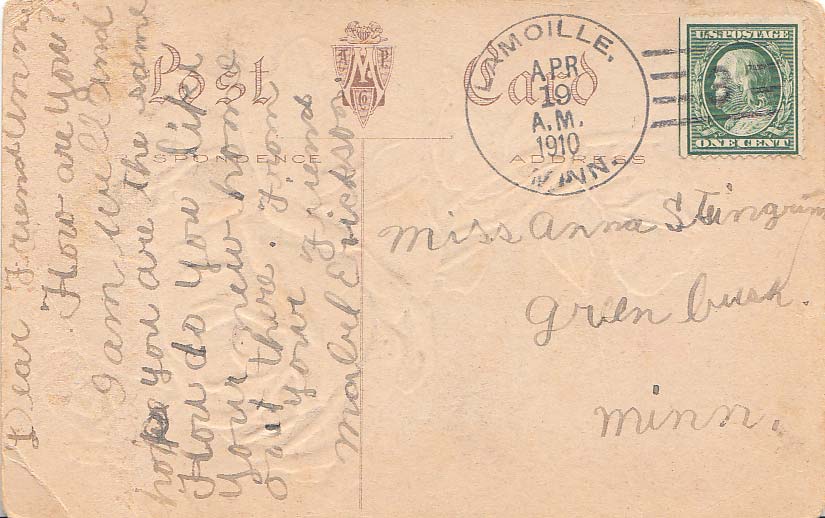 Post Card
A M P Co
CORRESPONDENCE
ADDRESS
LAMOILLE.
APR
19
A.M.
1910
MINN.
U.S. POSTAGE
ONE CENT
Dear Friend Anna
How are you?
I am well and
hope you are the same
How do you like
your new home
out there. From
your Friend
Mabel Erickson.
Miss Anna Steingrim
Green bush.
Minn.